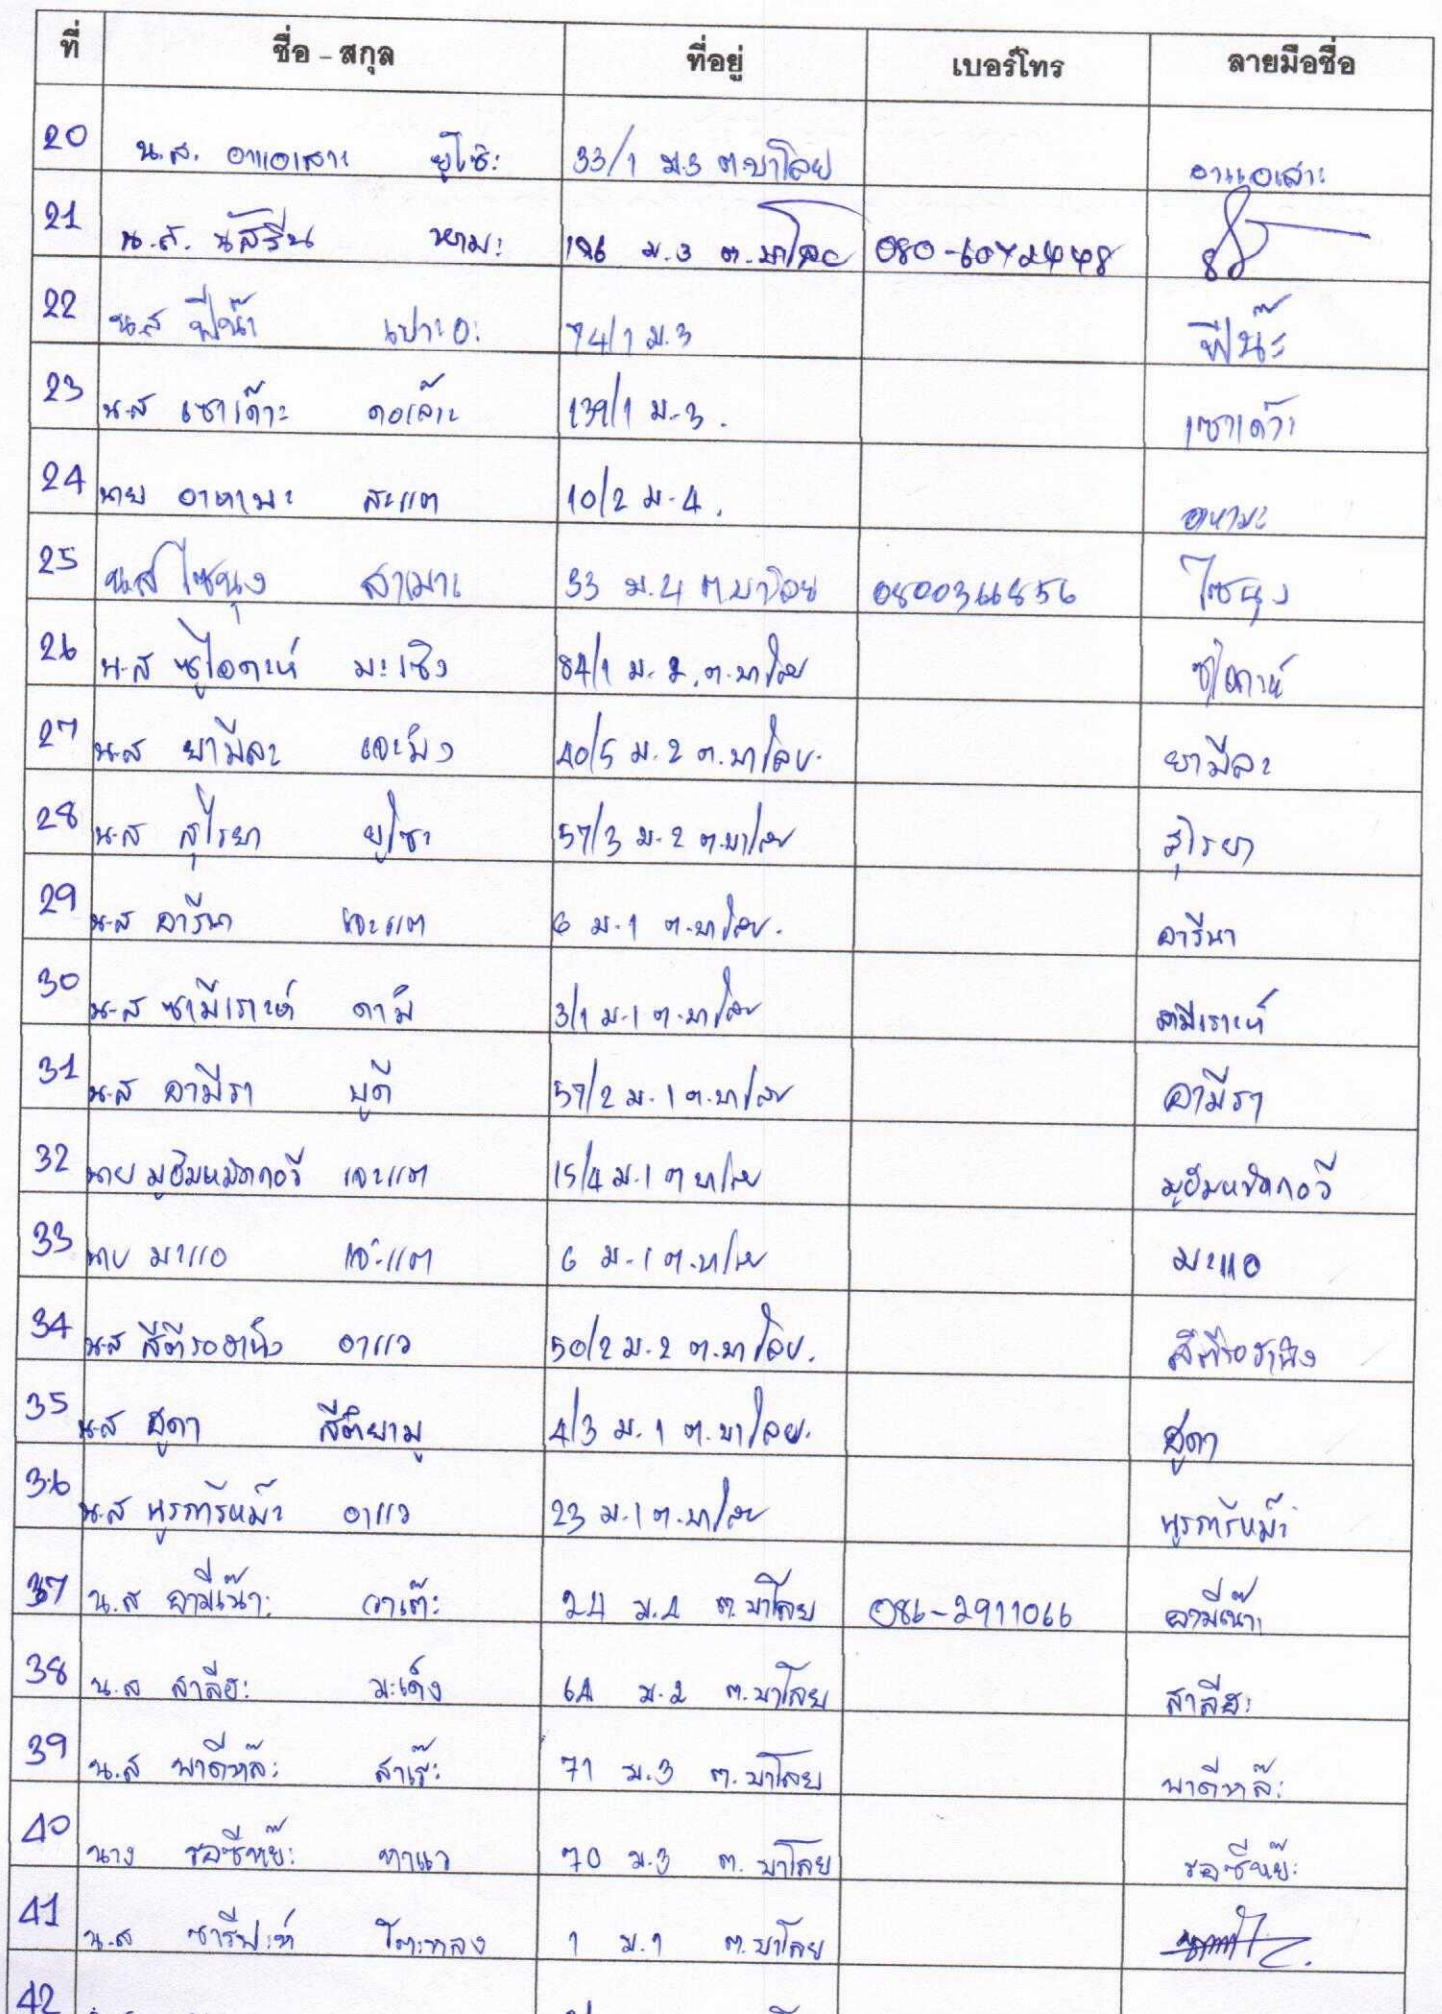 ที่ ชื่อ - สกุล ที่อยู่ เบอร์โทร ลายมือชื่อ
20 น.ส. อาแอเสาะ ยูโซ๊ะ 33/1 ม.3 ต.บาโลย อาแอเสาะ
21 น.ส. นัสรีน หามะ 196 ม.3 ต.บาโลย
22 น.ส ฟีน๊า เปาะอะ 74/1 ม.3 ฟีน๊ะ
23 น.ส เซาเด๊าะ ดอเล๊าะ 139/1 ม.3. เซาเด๊าะ
24 นาย อาหามะ สะแต 10/2 ม.4. อาหามะ
25 น.ส ไซนุง สาเมาะ 33 ม.4 ต.บาโลย 0800366856 ไซนุง
26 น.ส ซูไอดาะห์ มะเซ็ง 84/1 ม.2. ต.บาโลย
27 น.ส ยามีละ เจะมิง 40/5 ม.2 ต.บาโลย. ยามีละ
28 น.ส สุไรยา ยูโซะ 57/3 ม.2 ต.บาโลย สุไรยา
29 น.ส อารีนา เจะแต 6 ม.1 ต.บาโลย. อารีนา
30 น.ส ซามีเราะห์ ดามิ 3/1 ม.1 ต.บาโลย ซามีเราะห์
31 น.ส อามีรา บูดี 57/2 ม.1 ต.บาโลย อามีรา
32 นาย มูฮัมหมัดกอวี เจะแต 15/4 ม.1 ต บาโลย มูฮัมหมัดกอวี
33 นาย มะแอ เจ๊ะแต 6 ม.1 ต.บาโลย มะแอ
34 น.ส สีตีรอฮานิง อาแว 50/2 ม.2 ต.บาโลย. สีตีรอฮานิง
35 น.ส ฮูดา สีติยามู 4/3 ม.1 ต.บาโลย. ฮูดา
36 น.ส นูรการีหม๊ะ อาแว 23 ม.1 ต.บาโลย นูรการีหม๊ะ
37 น.ส อามีเน๊าะ วาเต๊ะ 24 ม.4 ต.บาโลย 086-2911066 อามีเน๊าะ
38 น.ส สาลีฮะ มะเด็ง 64 ม.2 ต.บาโลย สาลีฮะ
39 น.ส พาตีหล๊ะ สาเร๊ะ 71 ม.3 ต.บาโลย พาตีหล๊ะ
40 นาง รอซีหย๊ะ หาแว 70 ม.3 ต.บาโลย รอซีหย๊ะ
41 น.ส ซารีฟะห์ โต๊ะหลง 1 ม.1 ต.บาโลย
42